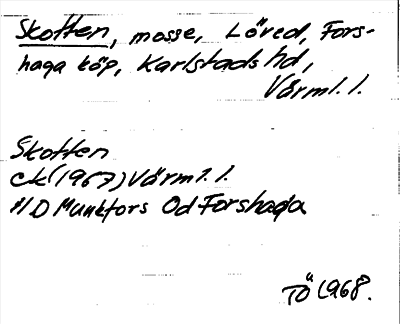 Skotten, mosse, Löved, Fors-
haga köp, Karlstads hd,
Värml. l.
Skotten
ck (1967) Värml. l.
HD Munkfors Od Forshaga
TÖ 1968.